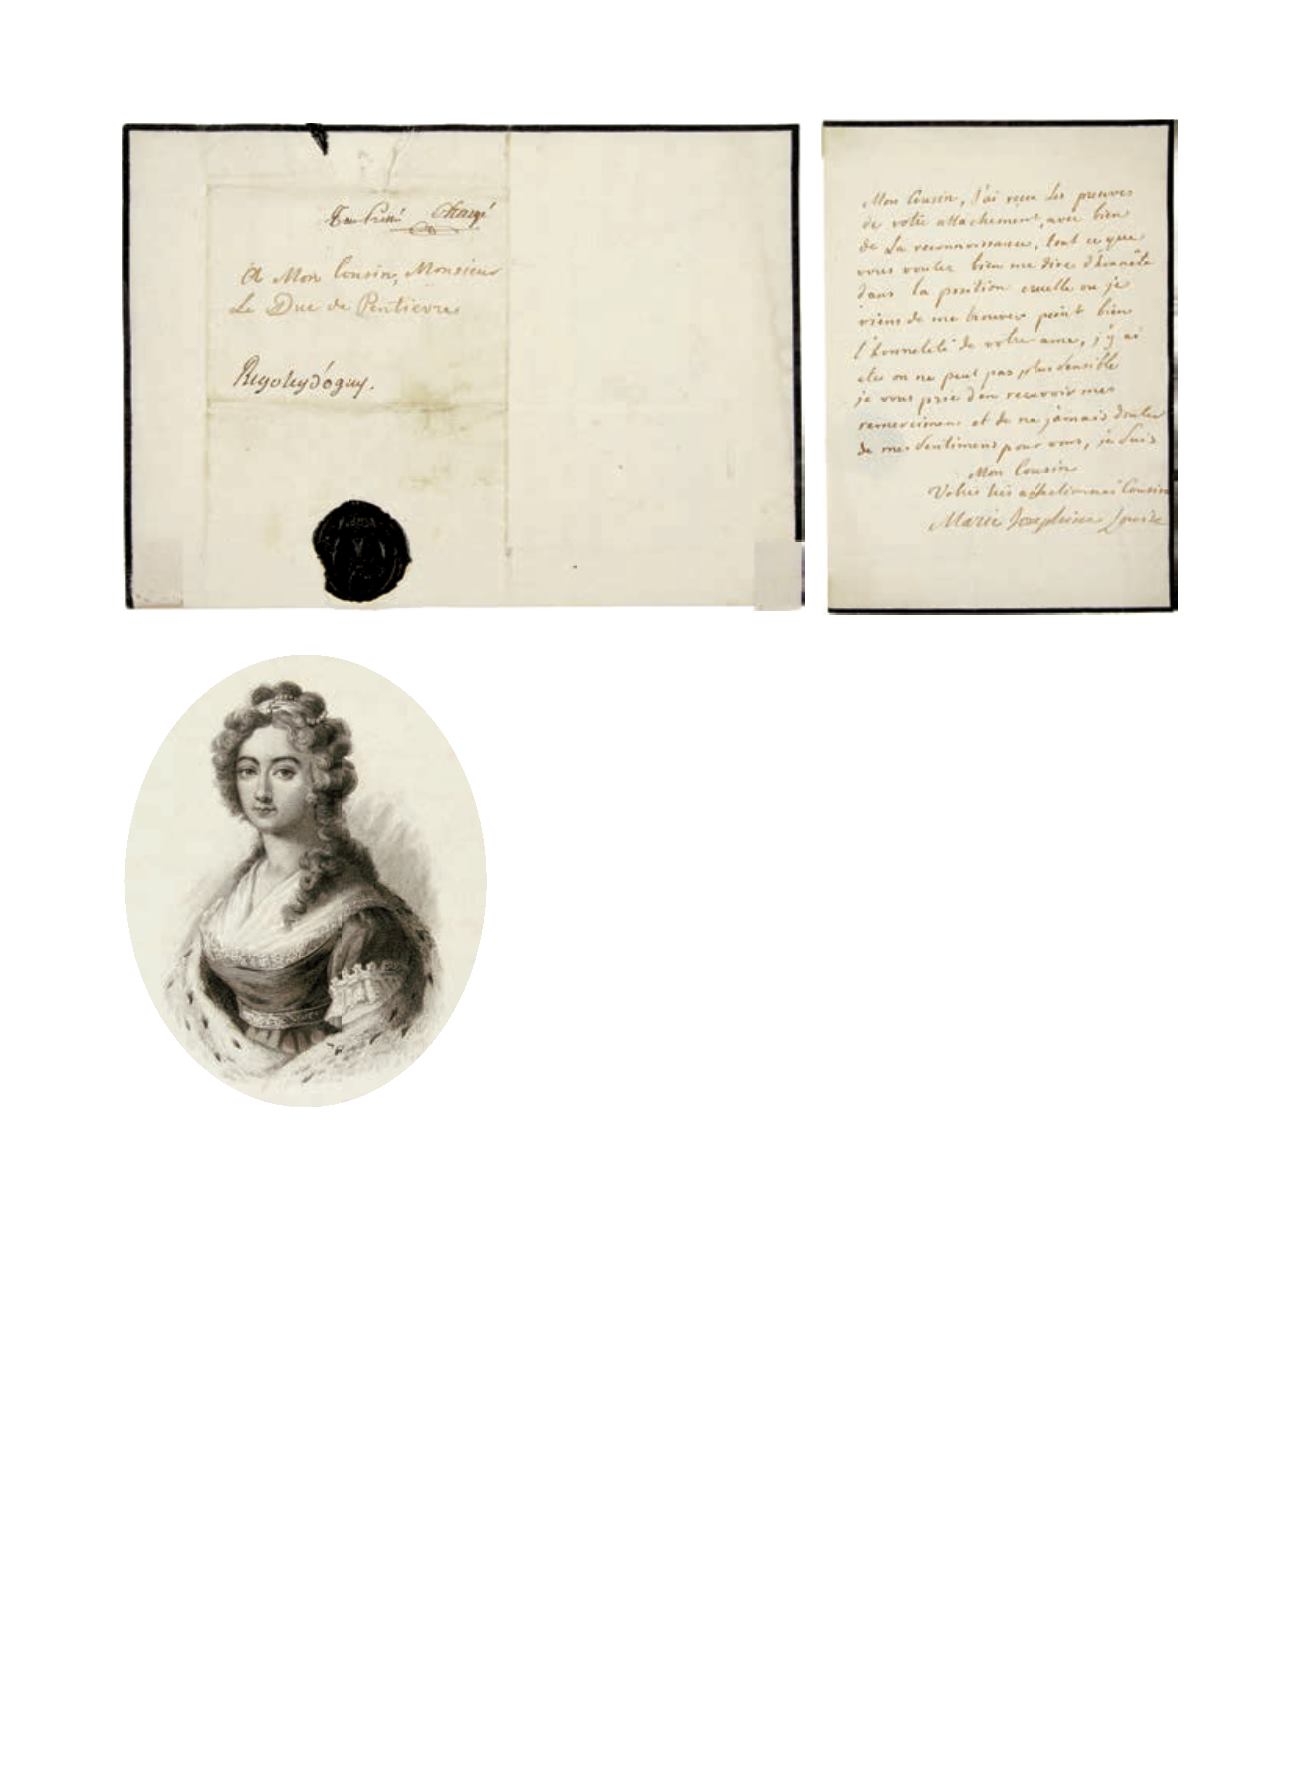 chargé
A Mon Cousin, Monsieur
Le Duc de Pentievre
Rigoleyd'ogny.
Mon Cousin, J'ai reçu les preuves
de votre attachement, avec bien
de la reconnoissance, tout ce que
vous voulez bien me dire d'honnête
dans la position cruelle ou je
viens de me trouver peint bien
l'honneteté de votre ame, j'y ai
eté on ne peut pas plus sensible
je vous prie d'en recevoir mes
remerciemens et de ne jamais douter
de mes sentimens pour vous, je suis
Mon Cousin
Votre très affectionnée Cousine
Marie Josephine Louise